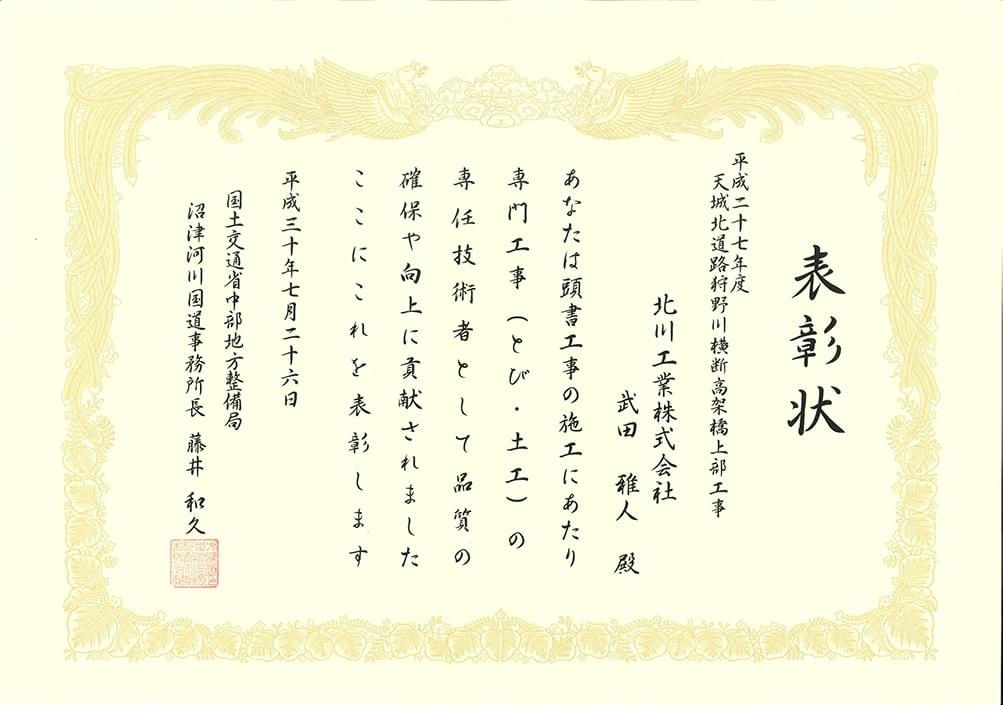 表彰状
平成二十七年度
天城北道路狩野川横断高架橋上部工事
北川工業株式会社
武田 雅人 殿
あなたは頭書工事の施工にあたり
専門工事(とび・土工)の
専任技術者として品質の
確保や向上に貢献されました
ここにこれを表彰します
平成三十年七月二十六日
国土交通省中部地方整備局
沼津河川国道事務所長 藤井 和久